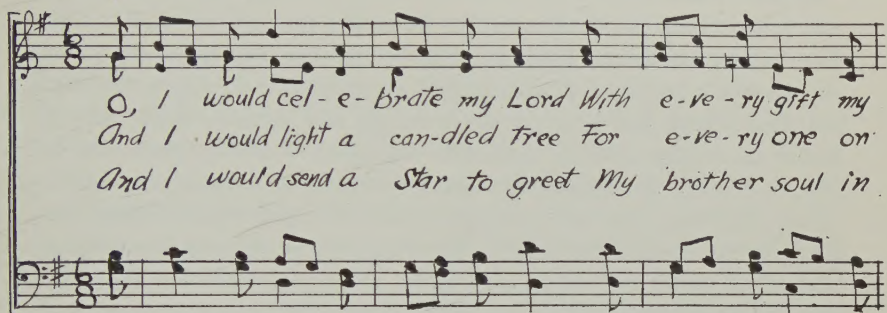 6
8
O, I would cel-e-brate my Lord With e-ve-ry gift my
And I would light a can-dled Tree For e-ve-ry one on
And I would send a Star to greet My brother soul in
6
8